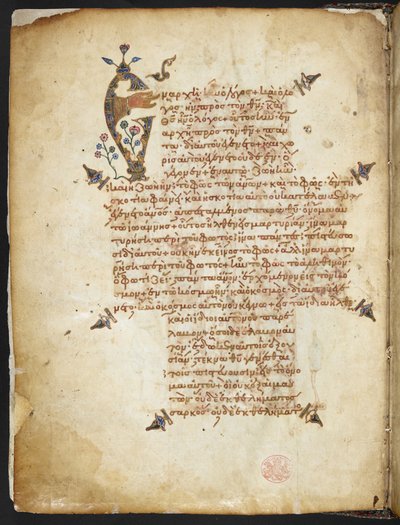 Ἐν ἀρχῆ ἦν ὁ λόγος + καὶ ὁ λό
γος ἦν πρὸς τὸν θν + καὶ
θς ἦν ὁ λόγος + οὗτος ἦν ἐν
ἀρχῆ πρὸς τὸν θν + πάν
τα δι αὐτοῦ ἐγένετο + καὶ χω
ρὶς αὐτοῦ ἐγένετο οὐδὲ ἕν + ὃ
γέγονεν + ἐν αὐτῶ ζωὴ ἦν
καὶ ἡ ζωὴ ἦν τὸ φῶς τῶν ἀνων + καὶ τὸ φῶς ἐν τῆ
σκοτία φαίνει + καὶ ἡ σκοτία αὐτὸ οὐ κατέλαβεν +
ἐγένετο ἄνος ἀπεσταλμένος παρὰ θυ + ὄνομα αὐ
τῶ ἰωάννης + οὗτος ἦλθεν εἰς μαρτυρίαν + ἵνα μαρ
τυρήση περὶ τοῦ φωτός + ἵνα πάντες πιστεύσω
σι δι αὐτοῦ + οὐκ ἦν ἐκεῖνος τὸ φῶς + ἀλλ ἵνα μαρτυ
ρήση περὶ τοῦ φωτός + ἦν τὸ φῶς τὸ ἀληθινὸν +
ὃ φωτίζει πάντα ἄνον ἐρχόμενον εἰς τὸν κό
σμον + ἐν τῶ κόσμω ἦν + καὶ ὁ κόσμος δι αὐτοῦ ἐγέ
νετο + καὶ ὁ κόσμος αὐτὸν οὐκ ἔγνω + εἰς τὰ ἴδια ἦλθεν
καὶ οἱ ἴδιοι αὐτὸν οὐ παρέ
λαβον + ὅσοι δὲ ἔλαβον αὐ
τὸν ἔδωκεν αὐτοῖς ἐξου
σίαν τέκνα θυ γενέσθαι
τοῖς πιστεύουσιν εἰς τὸ ὄνο
μα αὐτοῦ + οἳ οὐκ ἐξ αἱμά
των + οὐδὲ ἐκ θελήματος
σαρκὸς οὐδὲ ἐκ θελήματο